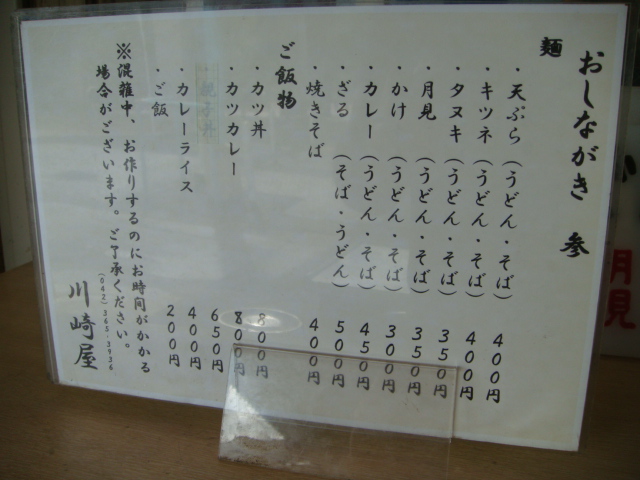 おしながき 参
麺
・天ぷら (うどん・そば) 400円
・キツネ (うどん・そば) 400円
・タヌキ (うどん・そば) 350円
・月見 (うどん・そば) 350円
・かけ (うどん・そば) 300円
・カレー (うどん・そば) 450円
・ざる (そば・うどん) 500円
・焼きそば 400円
ご飯物
・カツ丼 800円
・カツカレー 800円
・親子丼 650円
・カレーライス 400円
・ご飯 200円
※混雑中、お作りするのにお時間がかかる
場合がございます。ご了承ください。
川崎屋
(042)365-3936
月見